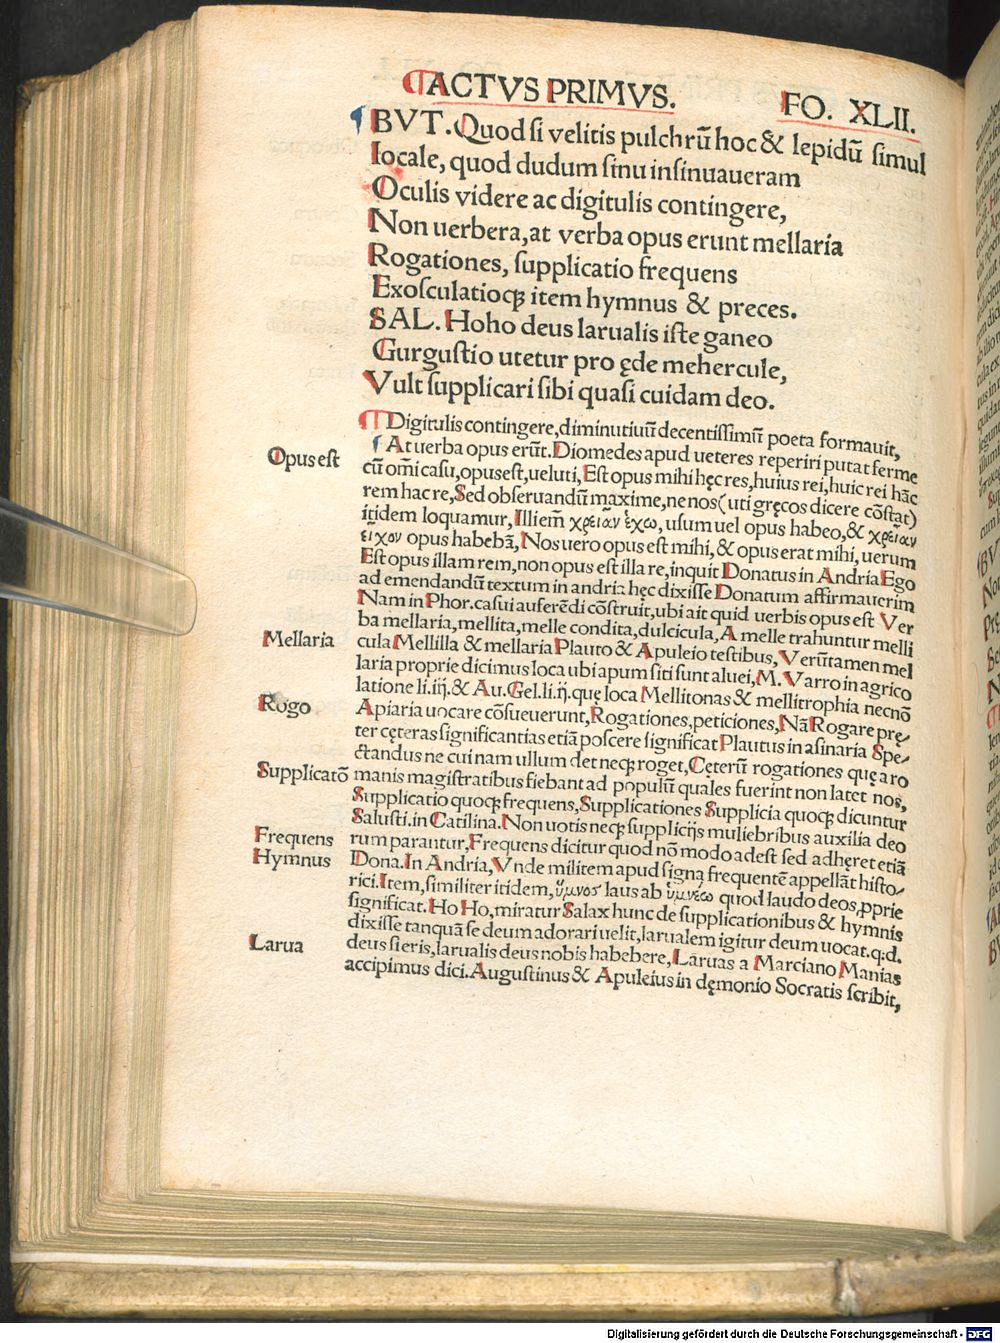 ACTVS PRIMVS. FO. XLII.
BVT. Quod ſi velitis pulchrū hoc & lepidū ſimul
Iocale, quod dudum ſinu inſinuaueram
Oculis videre ac digitulis contingere,
Non uerbera, at verba opus erunt mellaria
Rogationes, ſupplicatio frequens
Exoſculatioqȝ item hymnus & preces.
SAL. Hoho deus larualis iſte ganeo
Gurguſtio utetur pro ęde mehercule,
Vult ſupplicari ſibi quaſi cuidam deo.
Digitulis contingere, diminutiuū decentiſſimū poeta formauit,
At uerba opus erūt. Diomedes apud ueteres reperiri putat ferme
Opus eſt
cū om̄i caſu, opus eſt, ueluti, Eſt opus mihi hęc res, huius rei, huic rei hāc
rem hac re, Sed obſeruandū maxime, ne nos (uti gręcos dicere cōſtat)
itidem loquamur, Illiem̄ χρείαν ἔχω, uſum uel opus habeo, & χρείαν
εἶχον opus habebā, Nos uero opus eſt mihi, & opus erat mihi, uerum
Eſt opus illam rem, non opus eſt illa re, inquit Donatus in Andria Ego
ad emendandū textum in andria hęc dixiſſe Donatum affirmauerim
Nam in Phor. caſui auferēdi cōſtruit, ubi ait quid uerbis opus eſt Ver
ba mellaria, mellita, melle condita, dulcicula, A melle trahuntur melli
Mellaria
cula Mellilla & mellaria Plauto & Apuleio teſtibus, Verūtamen mel
laria proprie dicimus loca ubi apum ſiti ſunt aluei, M. Varro in agrico
latione li. iij. & Au. Gel. li. ij. quę loca Mellitonas & mellitrophia necnō
Rogo
Apiaria uocare cōſueuerunt, Rogationes, peticiones, Nā Rogare prę⸗
ter cęteras ſignificantias etiā poſcere ſignificat Plautus in aſinaria Spe⸗
ctandus ne cui nam ullum det neqȝ roget, Cęterū rogationes quę a ro
Supplicatō
manis magiſtratibus fiebant ad populū quales fuerint non latet nos,
Supplicatio quoqȝ frequens, Supplicationes Supplicia quoqȝ dicuntur
Saluſti. in Catilina. Non uotis neqȝ ſupplicijs muliebribus auxilia deo
Frequens
rum parantur, Frequens dicitur quod nō modo adeſt ſed adhęret etiā
Hymnus
Dona. In Andria, Vnde militem apud ſigna frequentē appellāt hiſto⸗
rici. Item, ſimiliter itidem, ὕμνος laus ab ὑμνέω quod laudo deos, pprie
ſignificat. Ho Ho, miratur Salax hunc de ſupplicationibus & hymnis
dixiſſe tanquā ſe deum adorari uelit, larualem igitur deum uocat. q.d.
Larua
deus ſieris, larualis deus nobis habebere, Laruas a Marciano Manias
accipimus dici. Auguſtinus & Apuleius in dęmonio Socratis ſcribit,
Digitalisierung gefördert durch die Deutsche Forschungsgemeinschaft - DFG